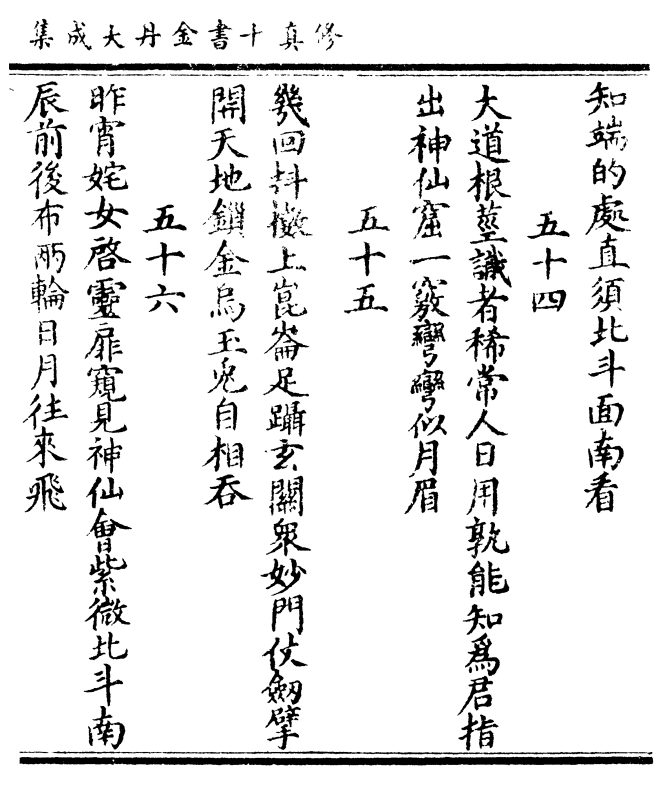 修真十書金丹大成集
知端的處直須北斗面南看
五十四
大道根莖識者稀常人日用孰能知爲君指
出神仙窟一竅彎彎似月眉
五十五
幾回抖擻上崑崙足躡玄關衆妙門仗劔擘
開天地鎖金烏玉兎自相吞
五十六
昨宵姹女啓靈扉窺見神仙會紫微北斗南
辰前後布兩輪日月往來飛